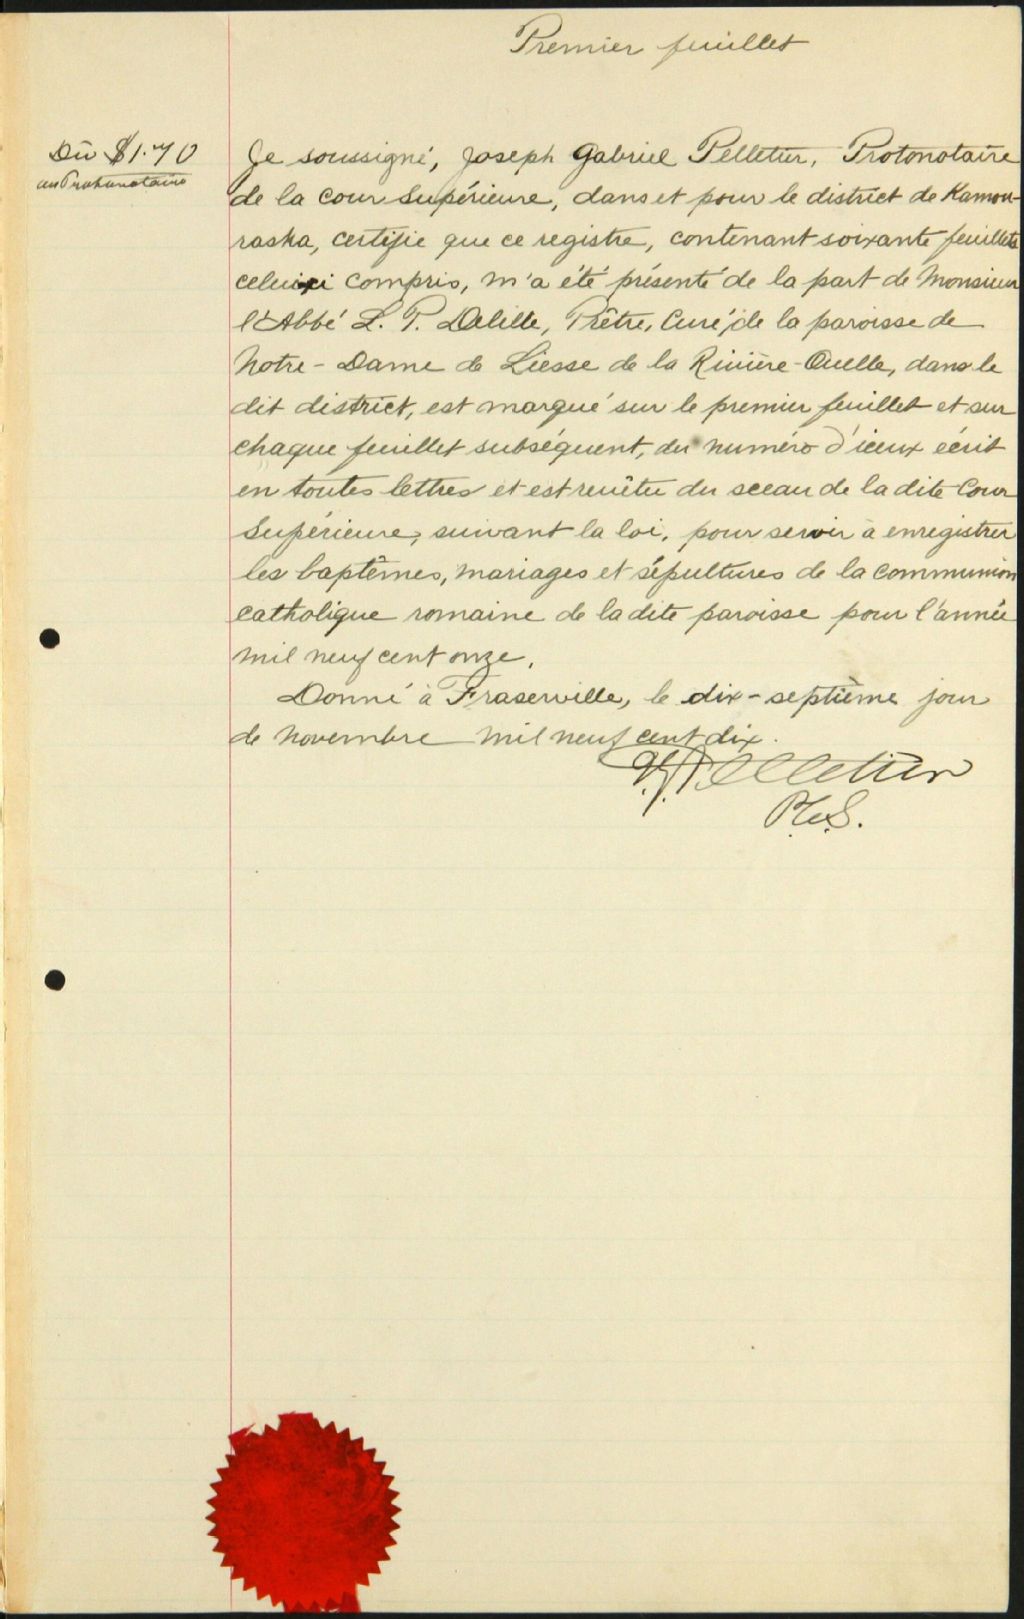 Premier feuillet
Dû $1.70
au Protonotaire
Je soussigné, Joseph Gabriel Pelletier, Protonotaire
de la Cour Supérieure, dans et pour le district de Kamou-
raska, certifie que ce registre, contenant soixante feuillets
celui-ci compris, m'a été présenté de la part de Monsieur
l'Abbé L. P. Delille, Prêtre, Curé, de la paroisse de
Notre-Dame de Liesse de la Rivière-Ouelle, dans le
dit district, est marqué sur le premier feuillet et sur
chaque feuillet subséquent, du numéro d'iceux écrit
en toutes lettres et est revêtu du sceau de la dite Cour
Supérieure, suivant la loi, pour servir à enregistrer
les baptêmes, mariages et sépultures de la communion
catholique romaine de la dite paroisse pour l'année
mil neuf cent onze.
Donné à Fraserville, le dix-septième jour
de novembre mil neuf cent dix.
Pelletier
P.C.S.